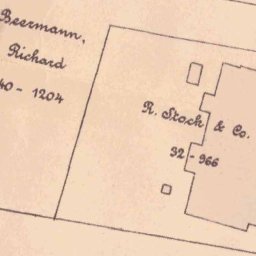 Beermann,
Richard
40 - 1204
R. Stock & Co.
32 - 966